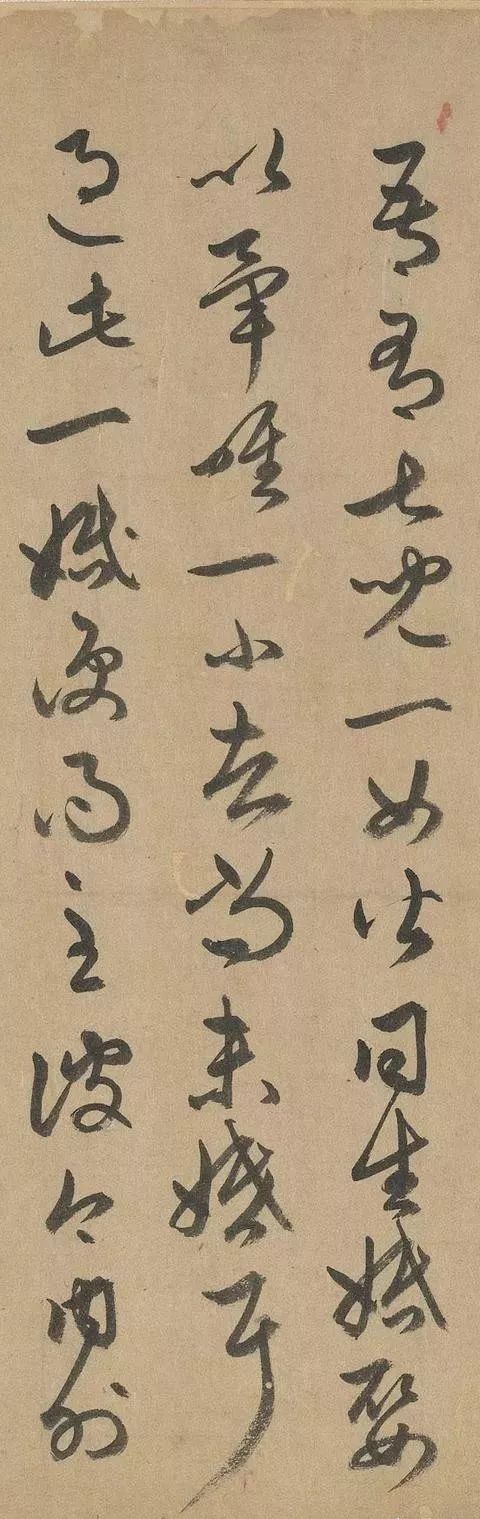 吾有七兒一女皆同生婚娶
以畢唯一小者尚未婚耳
過此一婚便得至彼今內外